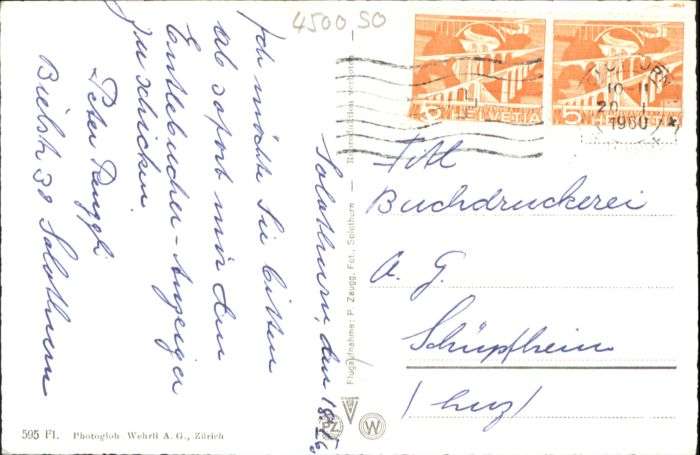 4500 SO
HELVETIA
5
HELVETIA
5
SOLOTHURN
10-11
20
1960
Solothurn, den 18.
Ich möchte Sie bitten
ab sofort mir den
Entlebucher-Anzeiger
zu schicken.
Peter
Bielstr 38 Solothurn
Titl
Buchdruckerei
A. G.
Schüpfheim
(Luz)
Flugaufnahme: P. Zaugg, Fot., Solothurn — Reproduktion verboten
PZ
W
595 Fl. Photoglob Wehrli A. G., Zürich